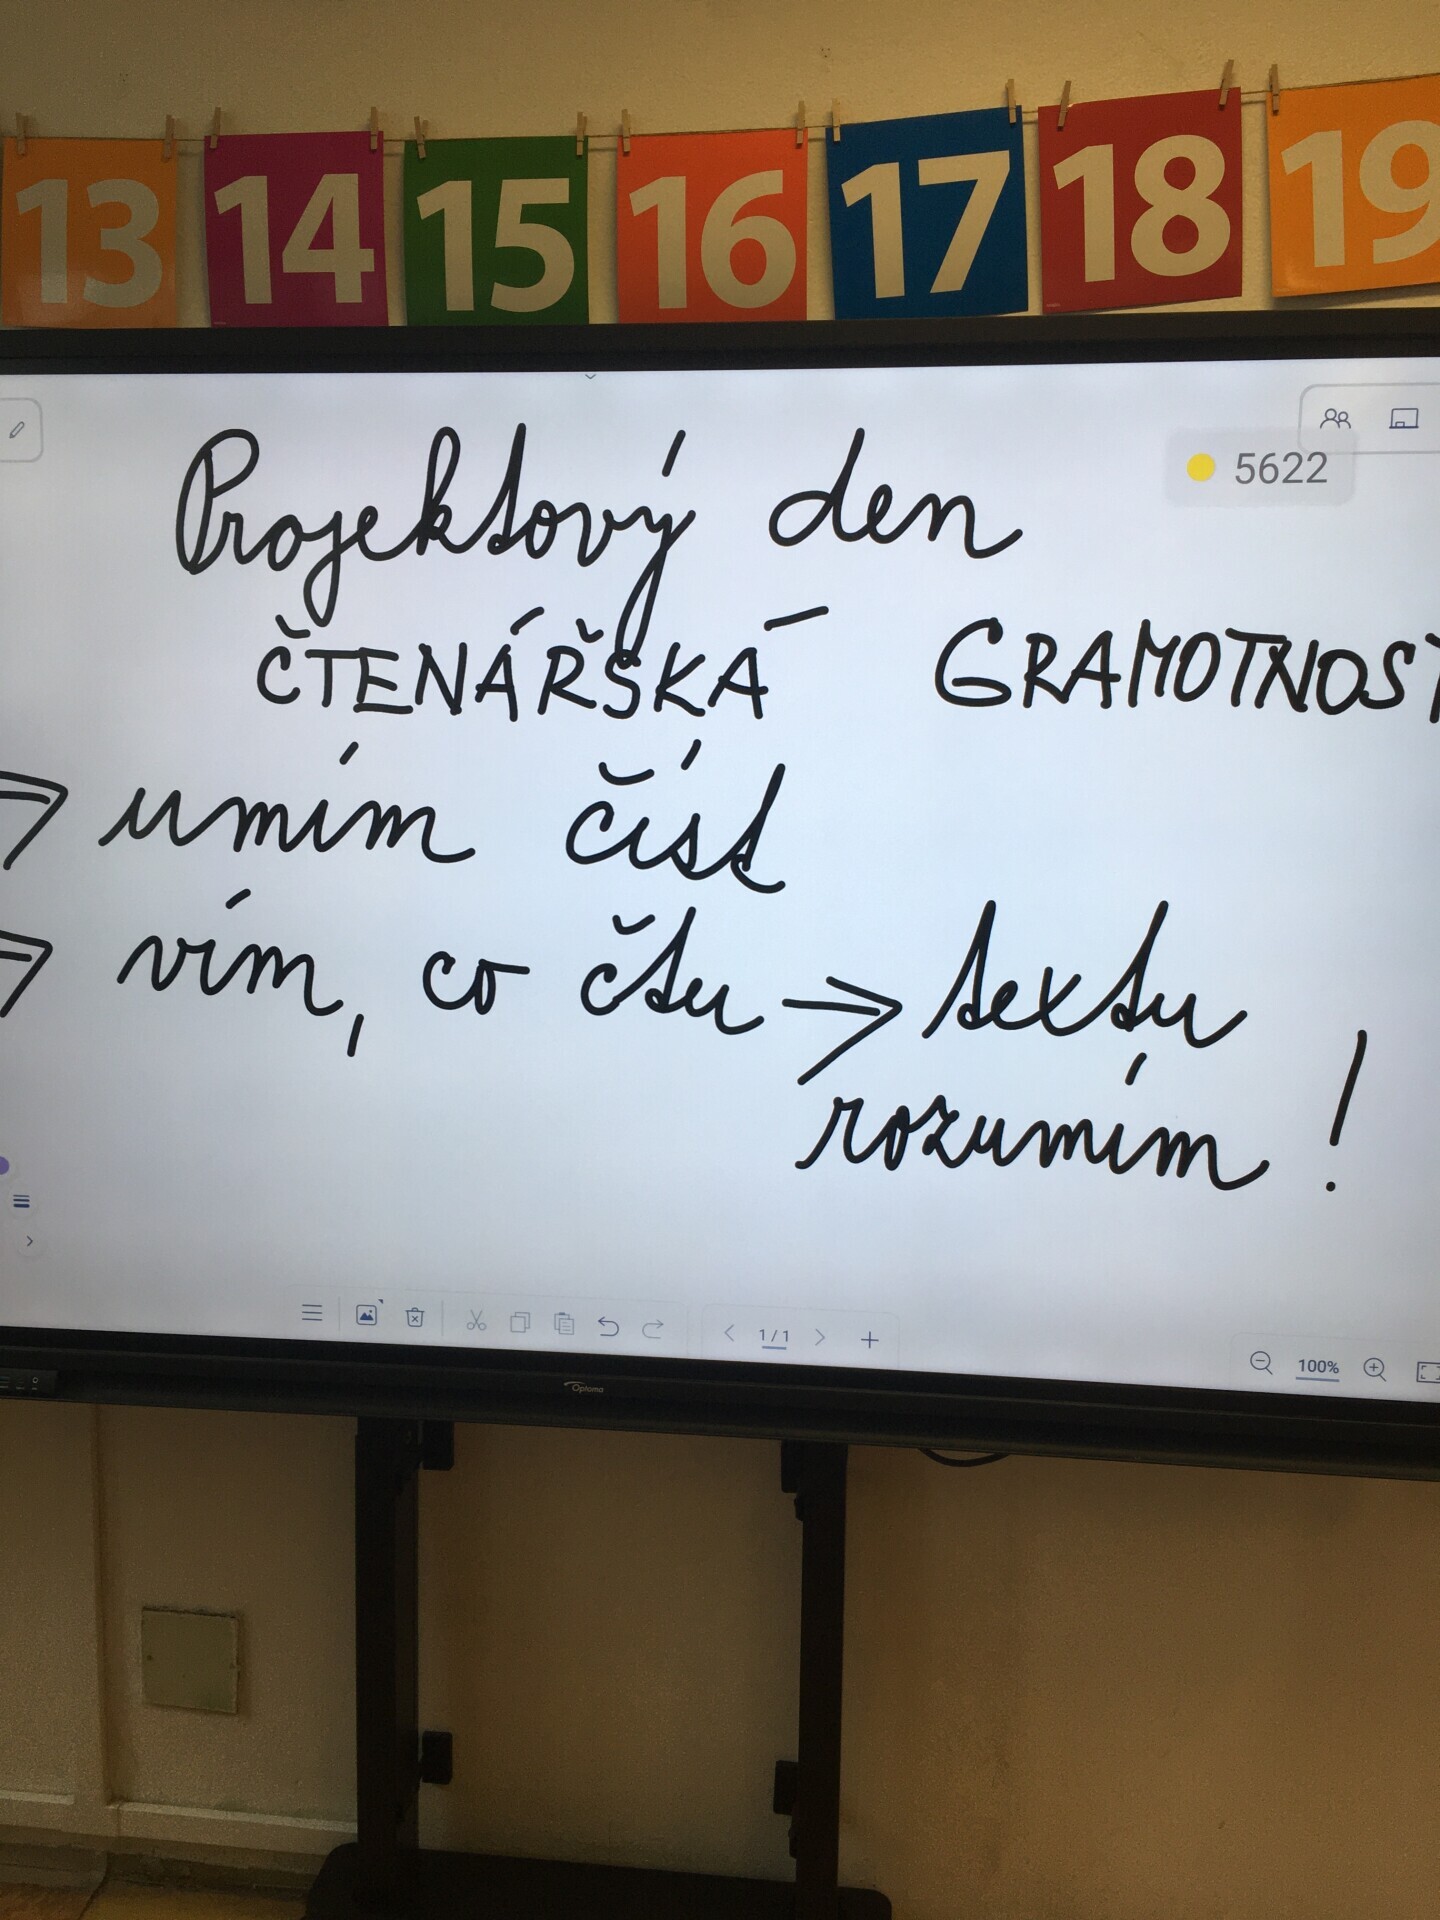 13 14 15 16 17 18 19
5622
Projektový den
ČTENÁŘSKÁ GRAMOTNOST
⇒ umím číst
⇒ vím, co čtu → textu
rozumím!
1/1
100%
Optoma